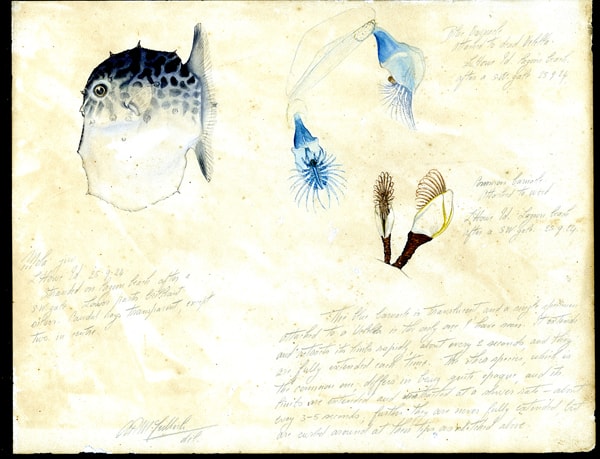 Blue Barnacle
attached to dead Velella
L Howe Id. Lagoon beach
after a SW gale 25.9.24
Common barnacle
attached to wood
L Howe Id. Lagoon beach
after a SW gale 25.9.24
Mola juv
L Howe Id 25.9.24
stranded on lagoon beach after a
SW gale. Lower parts brilliant
silver. Caudal rays transparent except
two in centre.
The blue barnacle is translucent, and a single specimen
attached to a Velella is the only one I have seen. It extends
and retracts its limbs rapidly, about every 2 seconds and they
are fully extended each time. The other species, which is
the common one, differs in being quite opaque, and its
limbs are extended and retracted at a slower rate - about
every 3-5 seconds, further they are never fully extended but
are curled around at their tips, as sketched alive.
McCulloch
del.